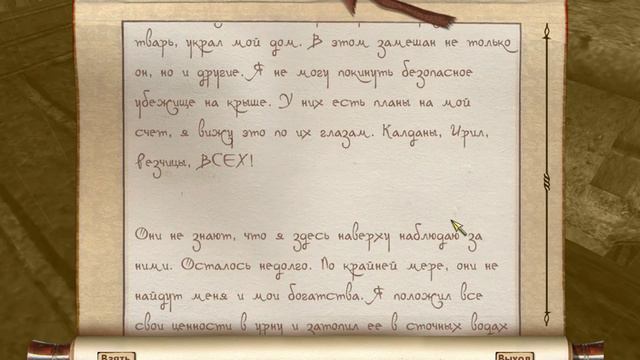 тварь, украл мой дом. В этом замешан не только
он, но и другие. Я не могу покинуть безопасное
убежище на крыше. У них есть планы на мой
счет, я вижу это по их глазам. Калданы, Ирил,
Резчицы, ВСЕХ!
Они не знают, что я здесь наверху наблюдаю за
ними. Осталось недолго. По крайней мере, они не
найдут меня и мои богатства. Я положил все
свои ценности в урну и затопил ее в сточных водах
Взять
Выход